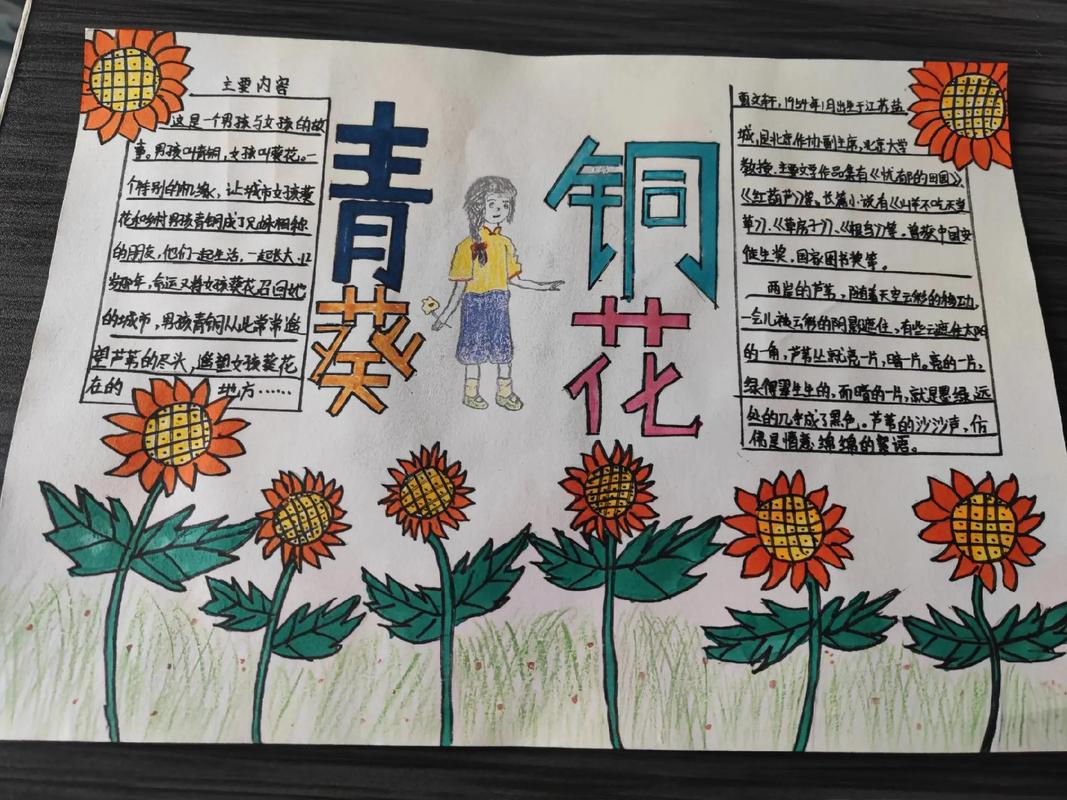 主要内容
这是一个男孩与女孩的故
事。男孩叫青铜,女孩叫葵花。一
个特别的机缘,让城市女孩葵
花和乡村男孩青铜成了兄妹相称
的朋友,他们一起生活,一起长大。12
岁那年,命运又将女孩葵花召回她
的城市,男孩青铜从此常常遥
望芦苇的尽头,遥望女孩葵花
在的 地方……
青铜
葵花
曹文轩,1954年1月出生于江苏盐
城,是北京作协副主席,北京大学
教授。主要文学作品集有《忧郁的田园》、
《红葫芦》等。长篇小说有《山羊不吃天堂
草》、《草房子》、《根鸟》等。曾获中国安
徒生奖,国家图书奖等。
两岸的芦苇,随着天空云彩的移动,
一会儿被云彩的阴影遮住,有些云遮住太阳
的一角,芦苇丛就亮一片,暗一片。亮的一片,
绿得翠生生的,而暗的一片,就是墨绿,远
处的几乎成了黑色。芦苇的沙沙声,仿
佛是情意绵绵的絮语。